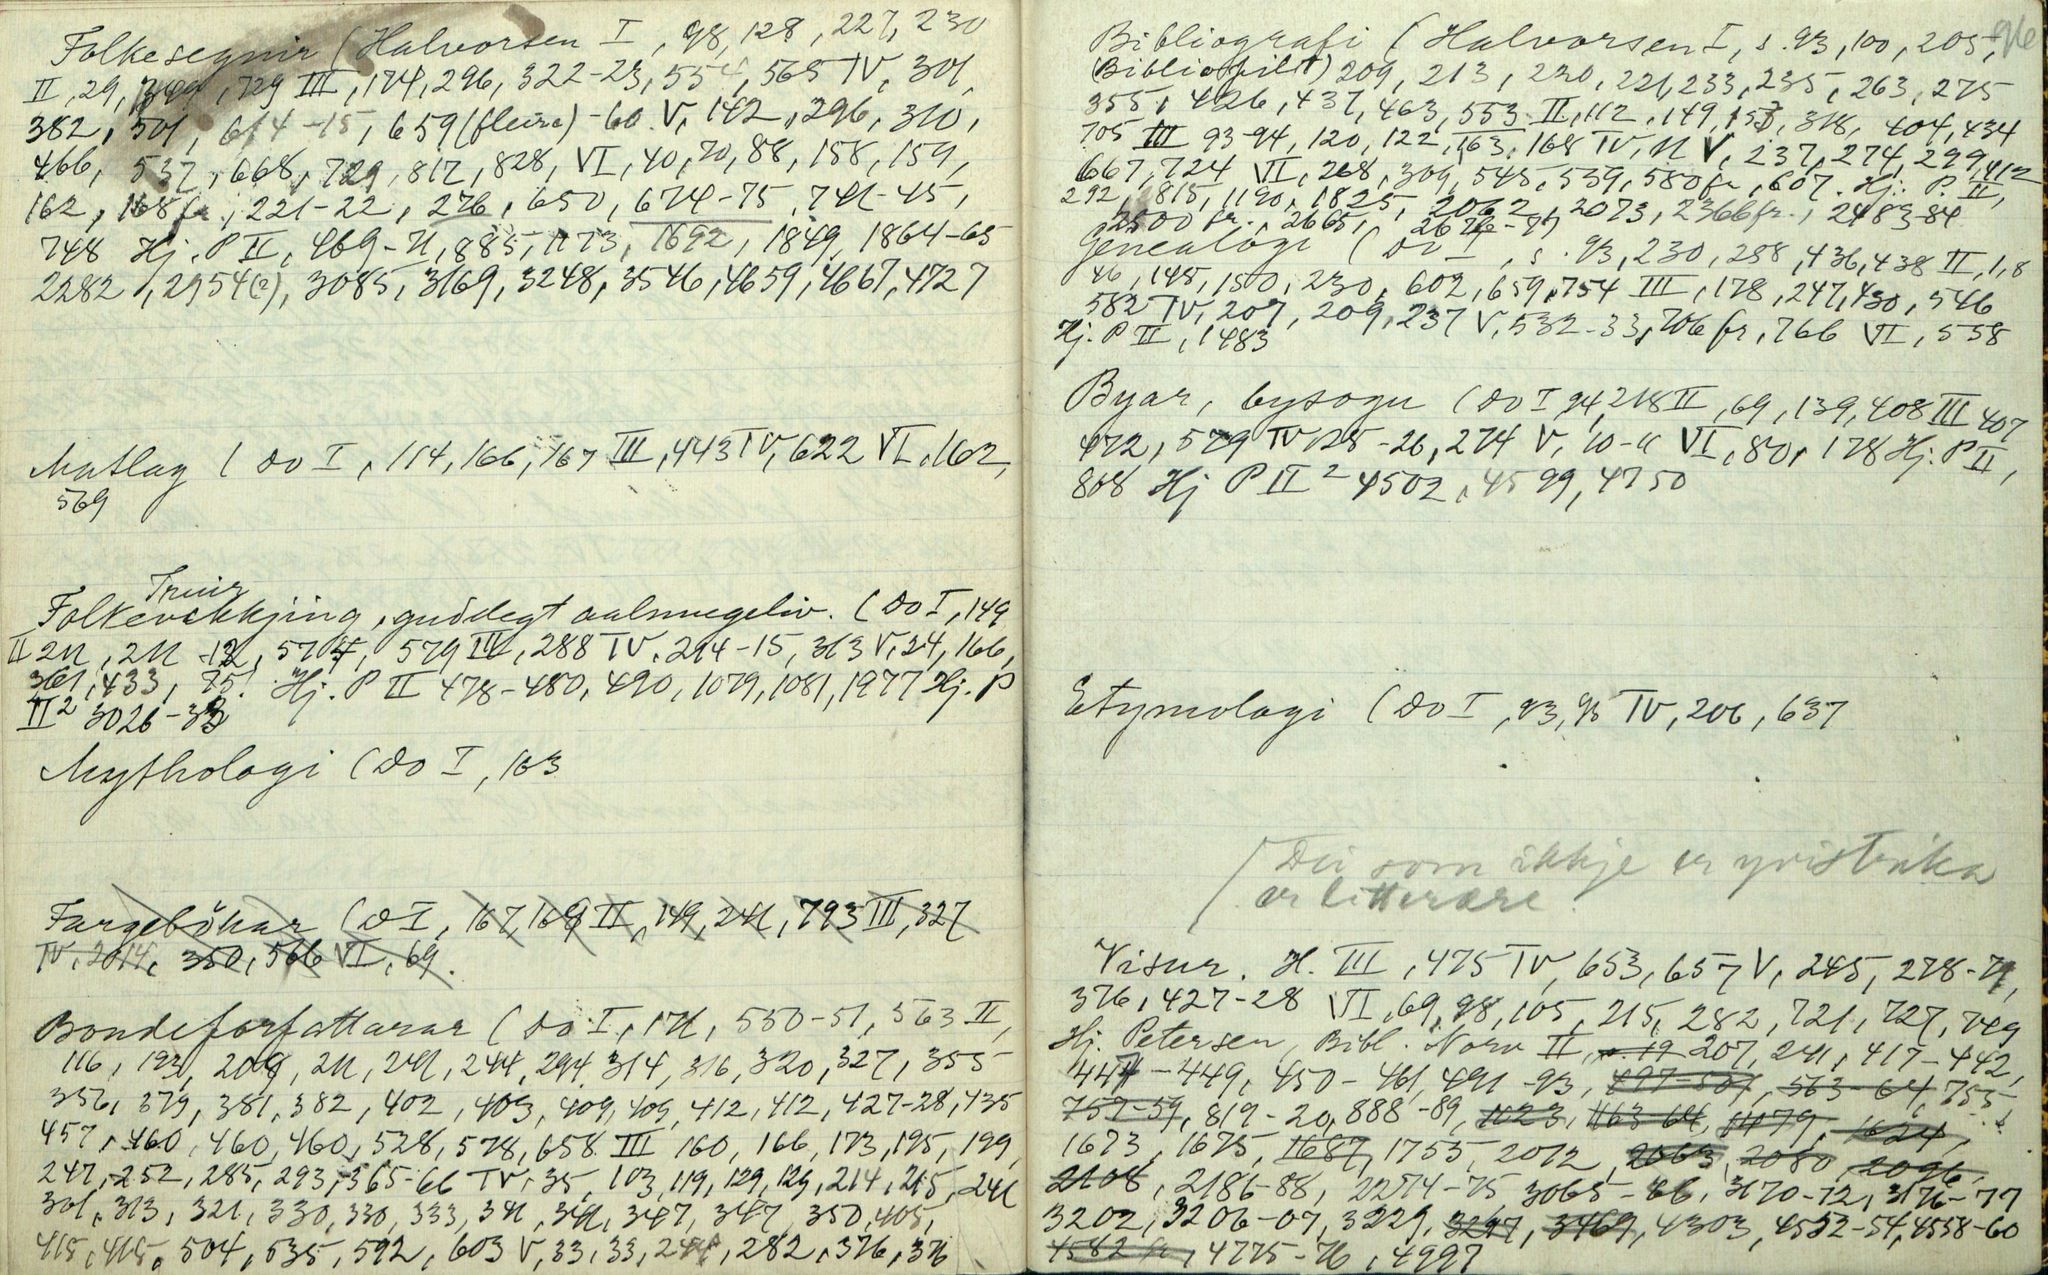 Folkesegnir (Halvorsen I, 98, 128, 227, 230
II, 29, 349, 729 III, 174, 296, 322-23, 554, 565 IV, 301,
382, 501, 614-15, 659 (fleire) -60 V, 142, 296, 310,
466, 537, 668, 729, 817, 828, VI, 40, 70, 88, 158, 159,
162, 168 fr., 221-22, 276, 650, 674-75, 741-45,
748 Hj. P II, 469-71, 885, 1173, 1692, 1849, 1864-65
2282, 2954(2), 3085, 3169, 3248, 3546, 4659, 4667, 4727
Matlag (Do I, 114, 166, 167 III, 443 IV, 622 VI, 162,
569
Truir
Folkevekkjing, gudlegt aalmugeliv. (Do I, 149
II 211, 211-12, 574, 579 III, 288 IV, 214-15, 313 V, 24, 166,
361, 433, 75! Hj. P II 478-480, 490, 1079, 1081, 1977 Hj. P
II² 3026-33
Mythologi (Do I, 103
Fargebökar (Do I, 167, 169 II, 149, 241, 793 III, 327
IV, 214, 350, 566 VI, 69.
Bondeforfattarar (Do I, 171, 550-51, 563 II,
116, 193, 208, 211, 241, 244, 294, 314, 316, 320, 327, 355
356, 379, 381, 382, 402, 403, 409, 409, 412, 412, 427-28, 435
457, 460, 460, 460, 528, 578, 658 III 160, 166, 173, 195, 199,
247, 252, 285, 293, 365-66 IV, 35, 103, 119, 129, 129, 214, 215, 241
301, 313, 321, 330, 330, 333, 341, 341, 347, 347, 350, 405,
415, 415, 504, 535, 592, 603 V, 33, 33, 244, 282, 376, 376
96
Bibliografi (Halvorsen I, s. 93, 100, 205,
(Bibliofili) 209, 213, 220, 221, 233, 235, 263, 275
355, 426, 437, 463, 553 II, 112, 149, 153, 318, 404, 434
705 III 93-94, 120, 122, 163, 168 IV, 11 V, 237, 274, 299, 412
667, 724 VI, 268, 309, 545, 539, 580 fr, 607. Hj. P. II,
292, 815, 1190, 1825, 2062, 2073, 2366 fr., 2483-84
2500 fr., 2665, 2676-77
Genealogi (Do I, s. 93, 230, 258, 436, 438 II, 1, 8
46, 145, 150, 230, 602, 659, 754 III, 178, 247, 430, 546
582 IV, 207, 209, 237 V, 532-33, 706 fr, 766 VI, 558
Hj. P II, 1483
Byar, bysogu (Do I 94, 218 II, 69, 139, 408 III 407
472, 579 IV 125-26, 274 V, 10-11 VI, 80, 178 Hj. P II,
808 Hj P II² 4502, 4599, 4750
Etymologi (Do I, 93, 95 IV, 206, 637
(Dei som ikkje er yvistrika
er litterære.
Visur. H. III, 475 IV, 653, 657 V, 245, 278-79,
376, 427-28 VI, 69, 98, 105, 215, 282, 721, 727, 749
Hj. Petersen, Bibl. Norv II, s. 19 207, 241, 417-442,
447-449, 450-461, 491-93, 497-501, 563-64, 755,
757-59, 819-20, 888-89, 1023, 1163-64, 1479, 1624,
1673, 1675, 1687, 1755, 2012, 2063, 2080, 2096,
2108, 2186-88, 2274-75, 3065-66, 3170-72, 3176-77
3202, 3206-07, 3229, 3297, 3469, 4303, 4552-54, 4558-60
4582 fr, 4775-76, 4997